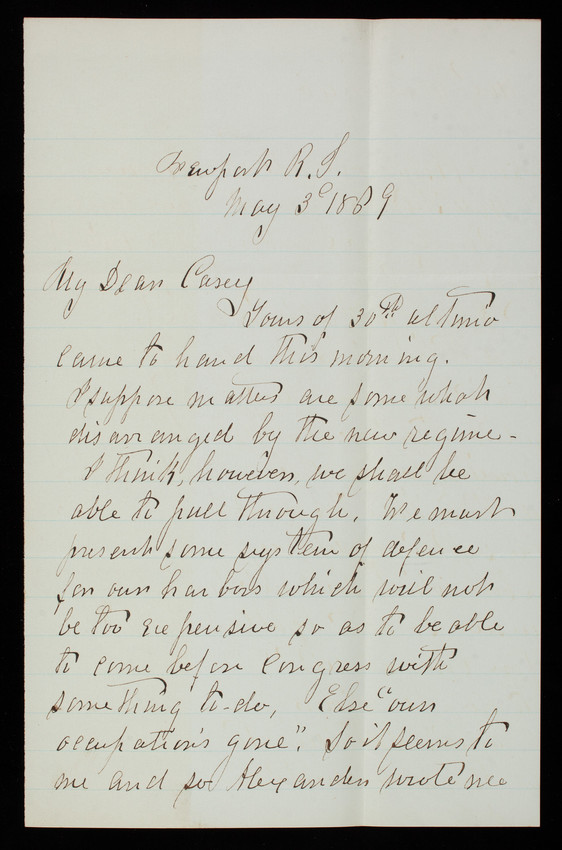 Newport R.I.
May 3d 1889
My Dear Casey
Yours of 30th ultimo
came to hand this morning.
I suppose matters are some what
disarranged by the new regime -
I think, however, we shall be
able to pull through. We must
present some system of defence
for our harbors which will not
be too expensive so as to be able
to come before Congress with
something to-do, Else "our
occupation's gone". So it seems to
me and so Alexander wrote me